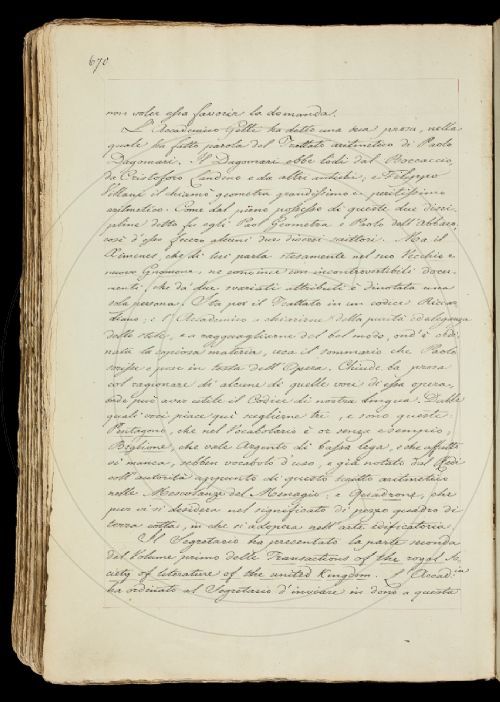 670
non voler essa favorir la domanda.
L'Accademico Gelli ha detto una sua prosa, nella
quale ha fatto parola del Trattato aritmetico di Paolo
Dagomari. Il Dagomari ebbe lodi dal Boccaccio,
da Cristoforo Landino e da altri antichi, e Filippo
Villani il chiamò geometra grandissimo e peritissimo
aritmetico. Come dal pieno possesso di queste due disci-
pline detto fu egli Paol Geometra e Paolo dall'Abbaco,
così d'esso fecero alcuni due diversi scrittori. Ma il
Ximenes, che di lui parla stesamente nel suo Vecchio e
nuovo Gnomone, ne convince con incontrovertibili docu-
menti, che da' due svariati attributi è dinotata una
sola persona. Sta poi il Trattato in un codice Riccar-
diano, e l'Accademico a chiarezza della purità ed eleganza
dello stile, e a ragguagliarne del bel modo, ond'è ordi-
nata la copiosa materia, reca il sommario che Paolo
scrisse e pose in testa dell'Opera. Chiude la prosa
col ragionare di alcune di quelle voci di essa opera,
onde può aver utile il Codice di nostra lingua. Dalle
quali voci piace qui sceglierne tre, e sono queste:
Pentagono, che nel Vocabolario è or senza esempio,
Biglione, che vale Argento di bassa lega, e che affatto
vi manca, sebben vocabolo d'uso, e già notato dal Redi
coll'autorità appunto di questo trattato aritmetico
nelle Mescolanze del Menagio, e Quadrone, che
pur vi si desidera nel significato di pezzo quadro di
terra cotta, in che si adopera nell'arte edificatoria.
Il Segretario ha presentato la parte seconda
del Volume primo delle Transactions of the royal So-
ciety of literature of the united Kingdom. L'Accad:ia
ha ordinato al Segretario d'inviare in dono a questa